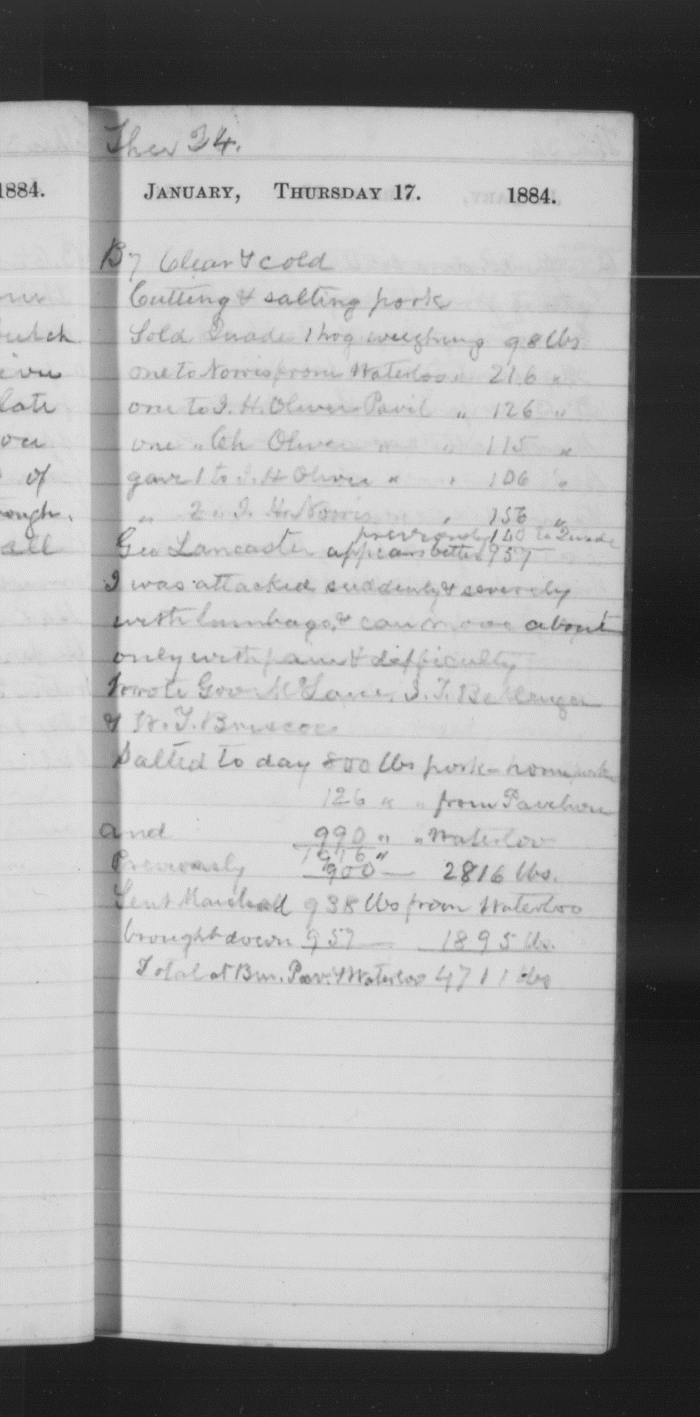 Ther 24.
1884.
JANUARY, THURSDAY 17. 1884.
By Clear & cold
Cutting & salting pork
Sold Quade 1 hog weighing 98 lbs
one to Norris from Waterloo " 216 "
one to J. H. Oliver Pavil " 126 "
one " Ch Oliver " " 115 "
gave 1 to J. H Oliver " " 106 "
" 2 " J. H. Norris " 156 "
previously 140 to Quade
Geo Lancaster appears better 957
I was attacked suddenly & severely
with lumbago, & can move about
only with pain & difficulty
Wrote Gov McLane, J. T.
& W. T. Briscoe
Salted to day 800 lbs pork - home
126 " " from Pavilion
and 990 " " Waterloo
1916 "
Previously 900 — 2816 lbs.
Sent Marshall 938 lbs from Waterloo
brought down 957 — 1895 lbs.
Total at Bm. Pav. & Waterloo 4711 lbs
late
of
all